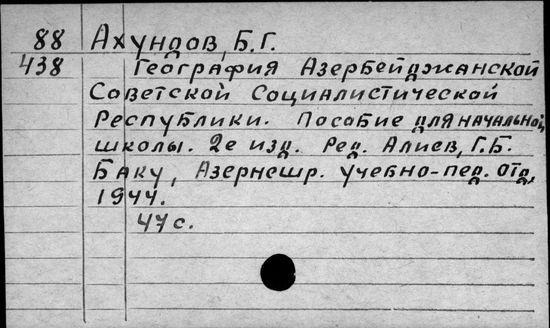 88 Ахундов, Б.Г.
438 География Азербейджанской
Советской Социалистической
Республики. Пособие для начальной
школы. 2е изд. Ред. Алиев, Г.Б.
Баку, Азернешр. Учебно-пед. отд,
1944.
47 с.